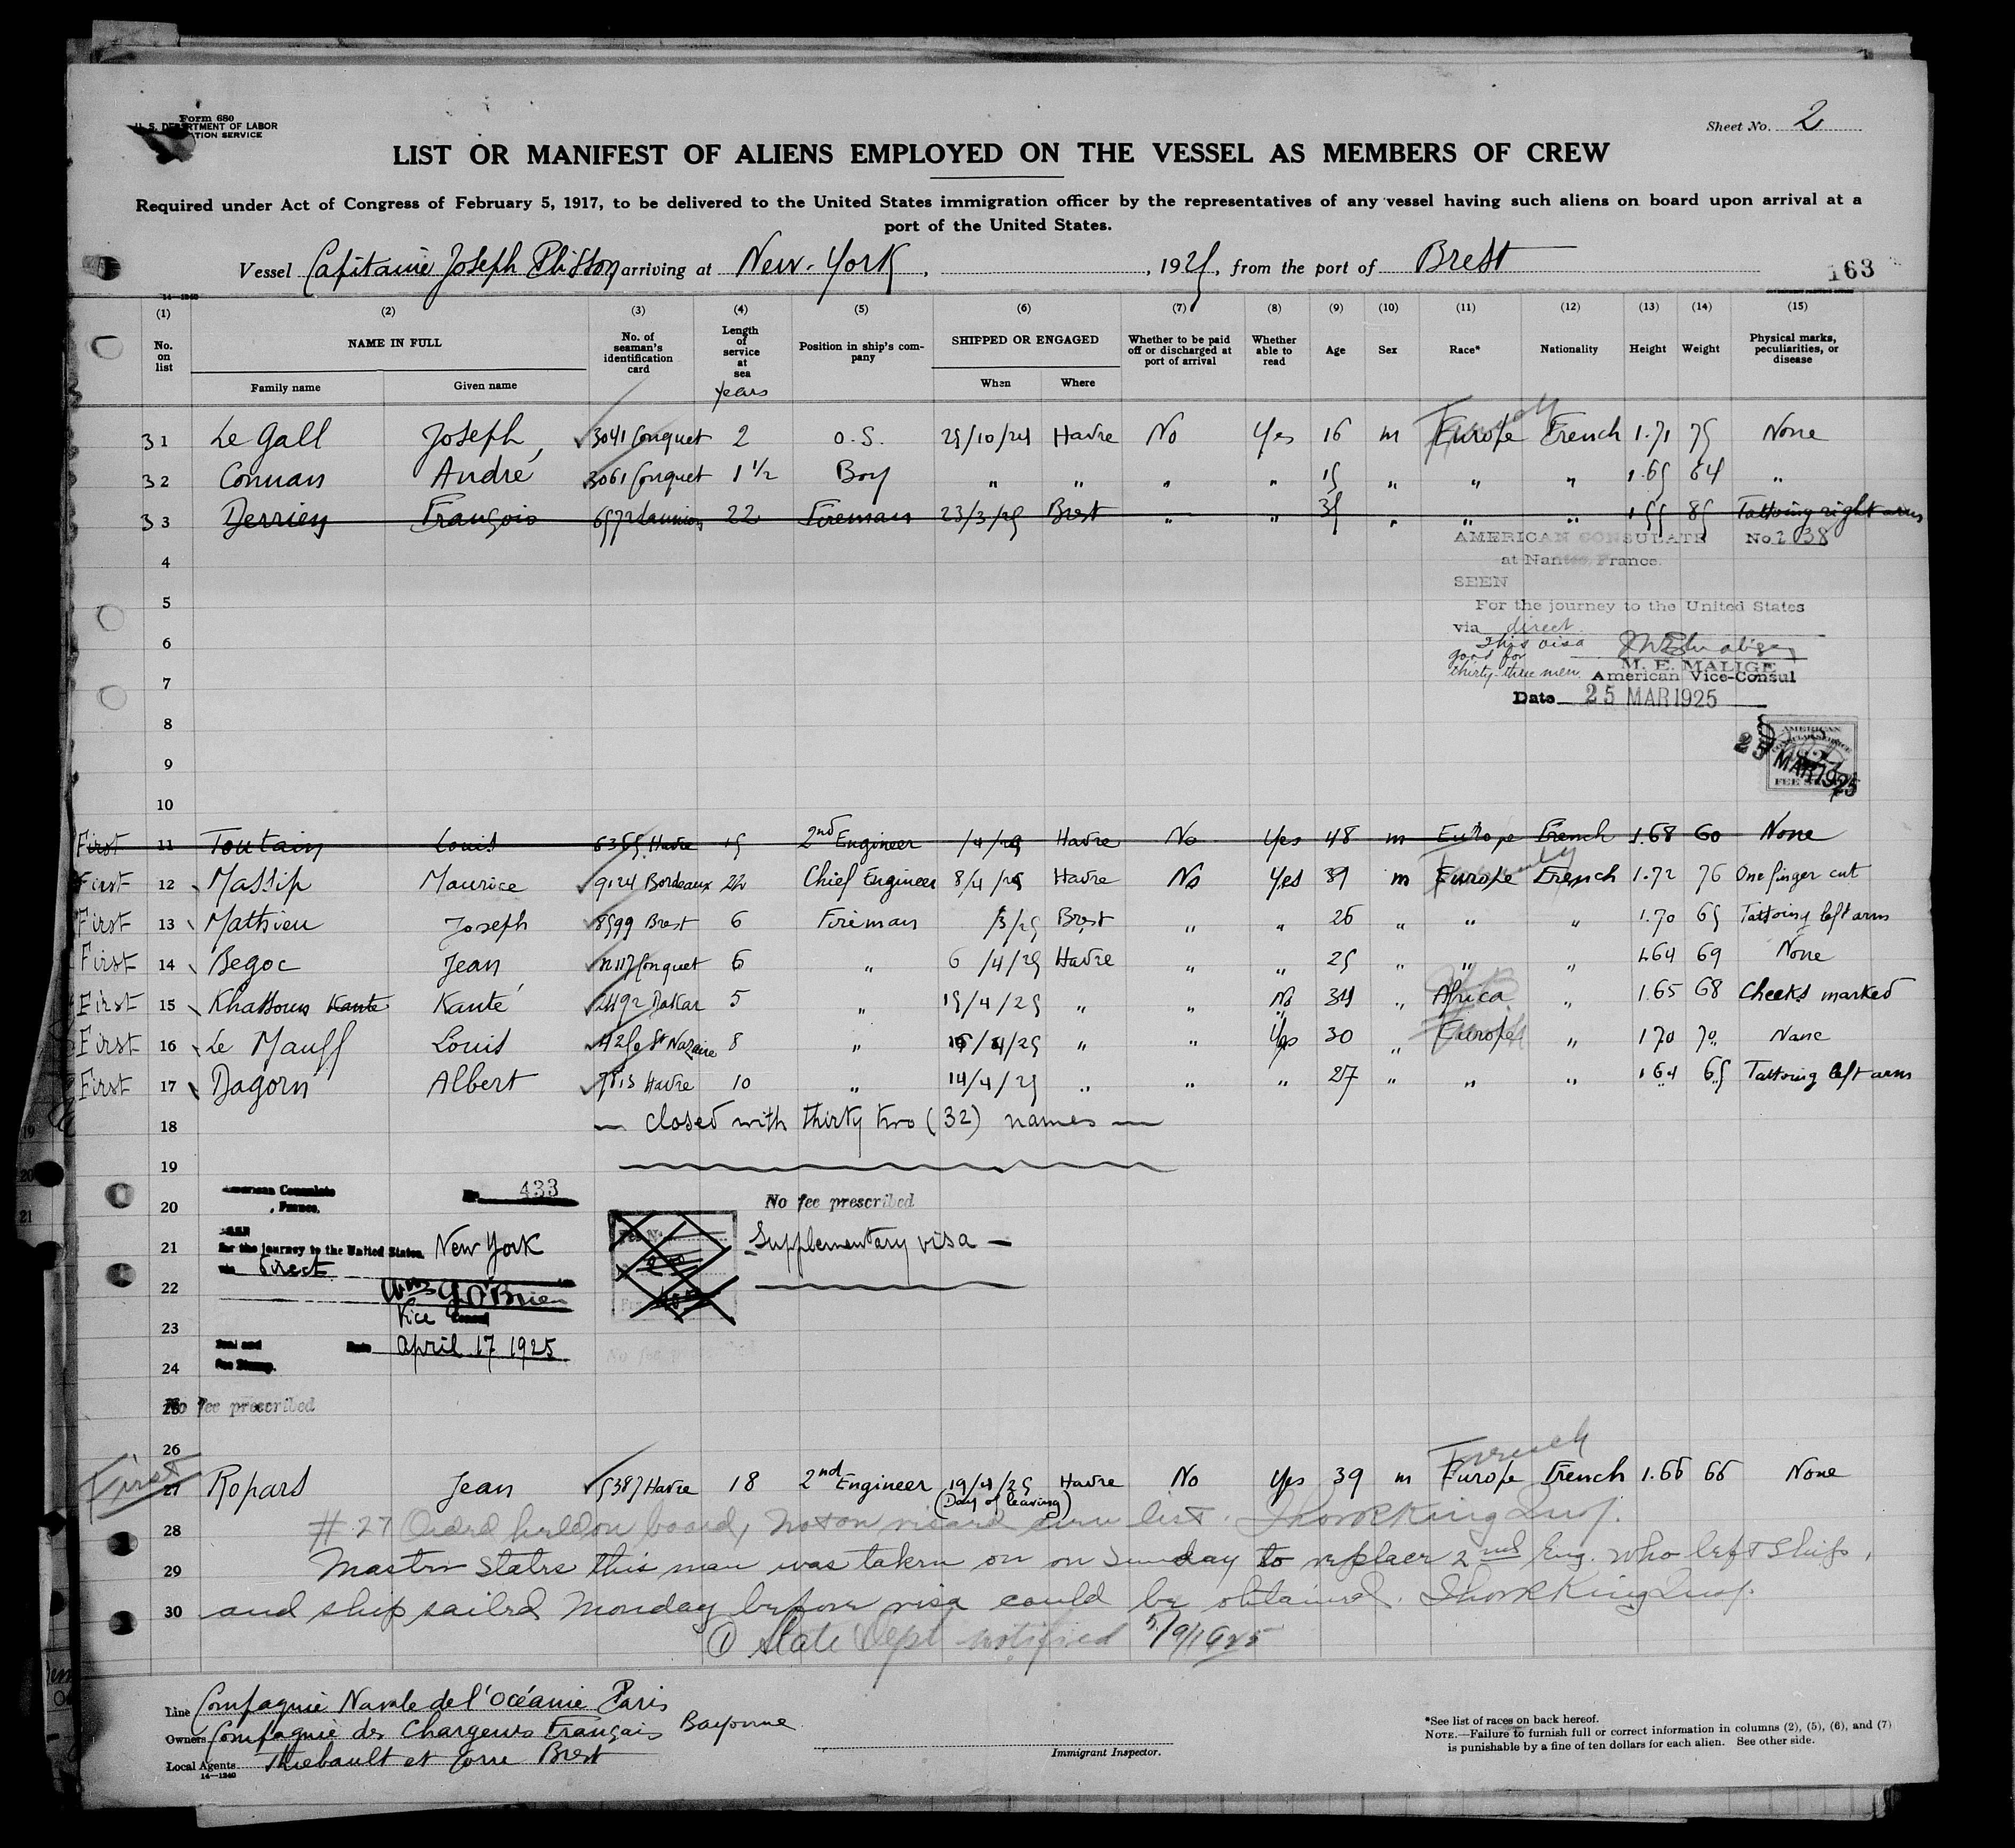 Form 680
U. S. DEPARTMENT OF LABOR
Sheet No. 2
LIST OR MANIFEST OF ALIENS EMPLOYED ON THE VESSEL AS MEMBERS OF CREW
Required under Act of Congress of February 5, 1917, to be delivered to the United States immigration officer by the representatives of any vessel having such aliens on board upon arrival at a
port of the United States.
Vessel Capitaine Joseph Plisson arriving at New-York, , 1925, from the port of Brest
163
(1) (2) (3) (4) (5) (6) (7) (8) (9) (10) (11) (12) (13) (14) (15)
No. on list NAME IN FULL Family name Given name No. of seaman's identification card Length of service at sea years Position in ship's company SHIPPED OR ENGAGED When Where Whether to be paid off or discharged at port of arrival Whether able to read Age Sex Race* Nationality Height Weight Physical marks, peculiarities, or disease
French
31 Le Gall Joseph 3041 Conquet 2 O.S. 25/10/24 Havre No Yes 16 m Europe French 1.71 75 None
32 Conuan André 3061 Conquet 1 1/2 Boy " " " " 15 " " " 1.65 64 "
33 Derrien François 6572 Lannion 22 Fireman 23/3/25 Brest " " 35 " " " 155 85 Tattoing right arm
AMERICAN CONSULATE No 2038
4 at Nantes, France.
SEEN
5 For the journey to the United States
via direct
6 This visa
good for
7 thirty-three men. M. E. MALIGE
American Vice-Consul
Date 25 MAR 1925
8
AMERICAN CONSULAR SERVICE FEE
25 MAR 1925
9
10
First 11 Toutain Louis 6365 Havre 15 2nd Engineer /4/25 Havre No Yes 48 m Europe French 1.68 60 None
First 12 Massip Maurice 9124 Bordeaux 22 Chief Engineer 8/4/25 Havre No Yes 39 m Europe French 1.72 76 One finger cut
First 13 Mathieu Joseph 8599 Brest 6 Fireman /3/25 Brest " " 26 " " " 1.70 65 Tattoing left arm
First 14 Begoc Jean Conquet 6 " 6/4/25 Havre " " 25 " " " 1.64 69 None
First 15 Khassoun Kante Kanté 2492 Dakar 5 " 15/4/25 " " No 34 " Africa " 1.65 68 Cheeks marked
First 16 Le Mauff Louis St Nazaire 8 " /4/25 " " Yes 30 " Europe " 170 70 None
First 17 Dagorn Albert 7813 Havre 10 " 14/4/25 " " " 27 " " " 1.64 65 Tattoing left arm
18 — closed with thirty two (32) names —
19
American Consulate No. 433
20 , France. No fee prescribed
SEEN
21 For the journey to the United States. New York Supplementary visa —
via Direct
22 Wm G O'Brien
Vice Consul
23
Seal and Date April 17 1925
24 Fee Stamp.
25 No fee prescribed
26
French
First 27 Ropars Jean 5387 Havre 18 2nd Engineer 19/4/25 Havre No Yes 39 m Europe French 1.66 66 None
(Day of leaving)
28 # 27 Ordrd held on board, not on visaed crew list. Insp.
29 Master states this man was taken on on Sunday to replace 2nd Eng. who left ship,
30 and ship sailed Monday before visa could be obtained. Insp.
① State Dept notified 5/9/1925
Line Compagnie Navale de l'Océanie Paris
Owners Compagnie des Chargeurs Français Bayonne
Local Agents Thiebault et Corre Brest
14—1240
Immigrant Inspector.
*See list of races on back hereof.
NOTE.—Failure to furnish full or correct information in columns (2), (5), (6), and (7)
is punishable by a fine of ten dollars for each alien. See other side.